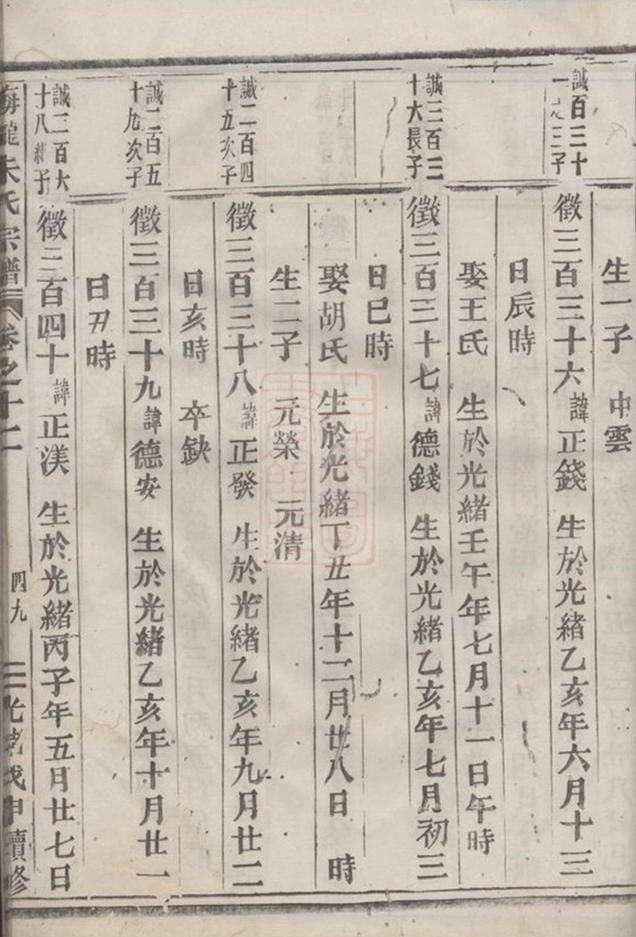 生一子 中雲
誠百三十
一之三子
徵三百三十六 諱正錢 生於光緒乙亥年六月十三
日辰時
娶王氏 生於光緒壬午年七月十一日午時
誠三百三
十六長子
徵三百三十七 諱德錢 生於光緒乙亥年七月初三
日巳時
娶胡氏 生於光緒丁丑年十二月廿八日 時
生二子 元榮 元清
誠二百四
十五次子
徵三百三十八 諱正發 生於光緒乙亥年九月廿二
日亥時 卒缺
誠二百五
十九次子
徵三百三十九 諱德安 生於光緒乙亥年十月廿一
日丑時
誠三百六
十八繼子
徵三百四十 諱正渼 生於光緒丙子年五月廿七日
朱氏宗譜 卷之十二 四九 光緒戊申續修